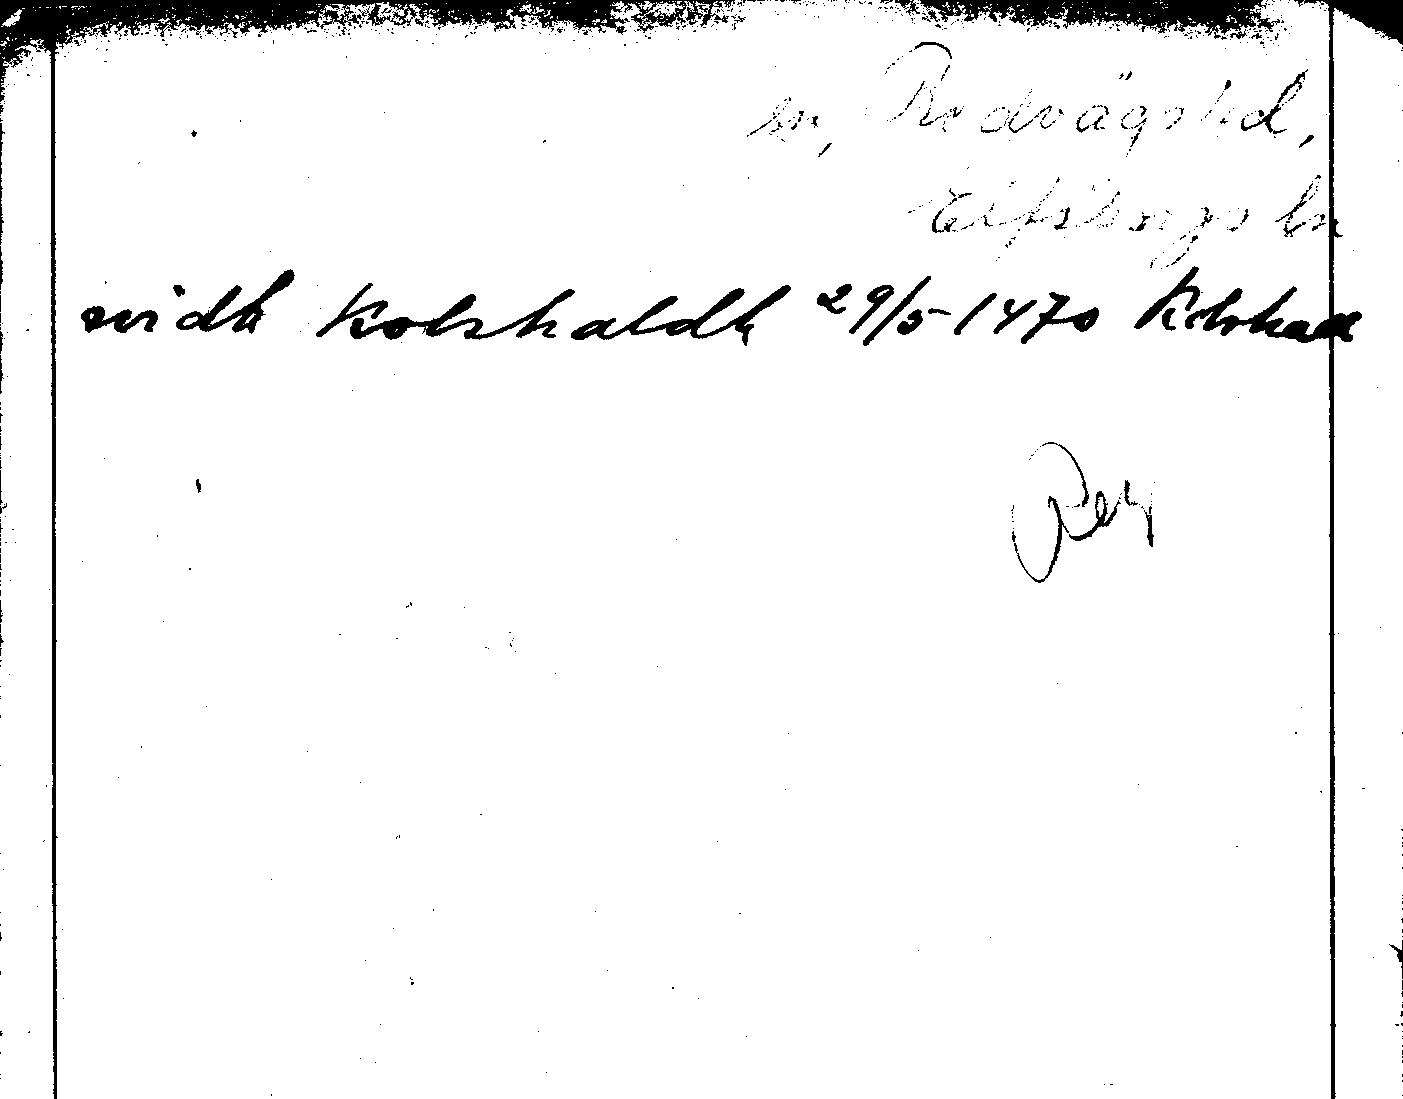 sn, Redvägs hd,
Älfsborgs ln
widh Kolzhaldh 29/5-1470 Kolshall
Rey